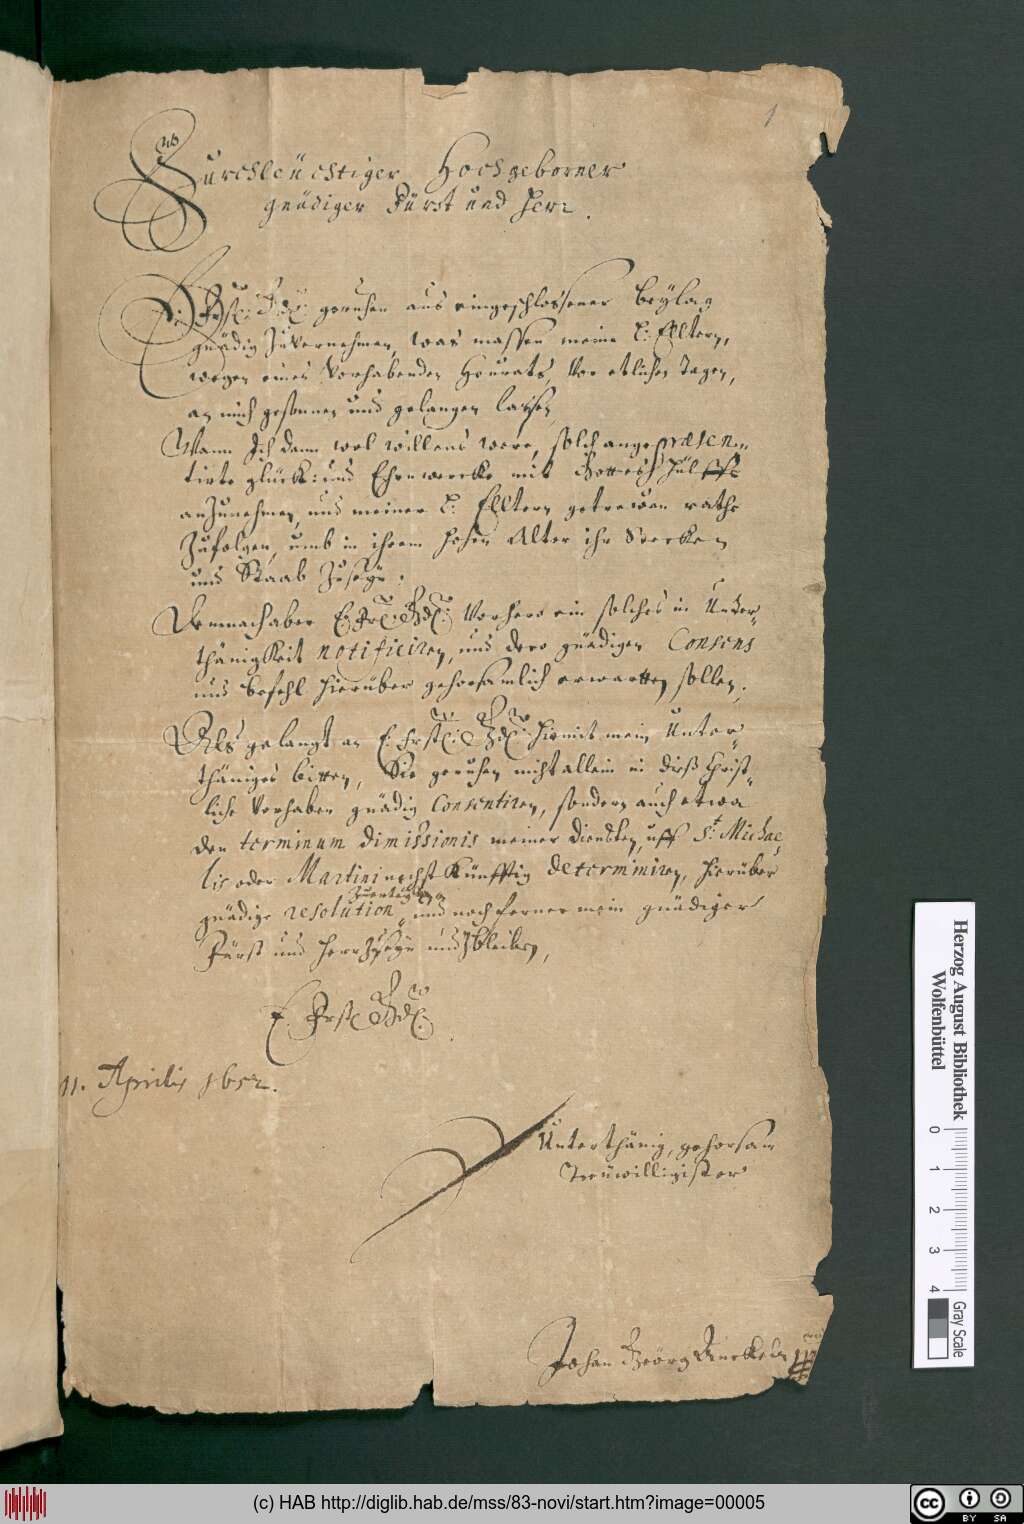 1
Durchleüchtiger Hochgeborner
gnädiger Fürst und Herr.
E. Frstl: Gdl: geruhen aus eingeschlossener Beylag
gnädig Zuvernehmen, was massen meine l: Elltern,
wegen eines Vorhabenden Heurats, Vor etlichen Tagen,
an mich gesonnen und gelangen lassen,
Wann Ich dann wol willens were, solch angepræsen-
tirte glück: und Ehrnwercke mit Gottes Hülffe
anZunehmen, und meiner l: Elltern getrewen rath
Zufolgen, umb in ihrem hohen Alter ihr Stecken
und Staab Zuseyn:
Demnach aber E. Fr: Gdl: Vorhero ein solches in Unter-
thänigkeit notificiren, und dero gnädigen Consens
und befehl hierüber gehorsamlich erwartten sollen,
Als gelangt an E. Frstl: Gdl: hiemit mein Unter-
thäniges bitten, Sie geruhen nicht allein in dieß Christ-
liche Vorhaben gnädig Consentiren, sondern auch etwa
den terminum dimissionis meiner diensten, uff St. Michae-
lis oder Martini nechst Künfftig determiniren, hierüber
gnädige resolution und noch ferner mein gnädiger
Fürst und Herr Zuseyn und Zbleiben,
E. Frstl Gdl:
11. Aprilis 1652.
Unterthänig, gehorsam
Treüwilligister
Johan Geörg
Herzog August Bibliothek
Wolfenbüttel
0 1 2 3 4
Gray Scale
(c) HAB http://diglib.hab.de/mss/83-novi/start.htm?image=00005
cc BY SA